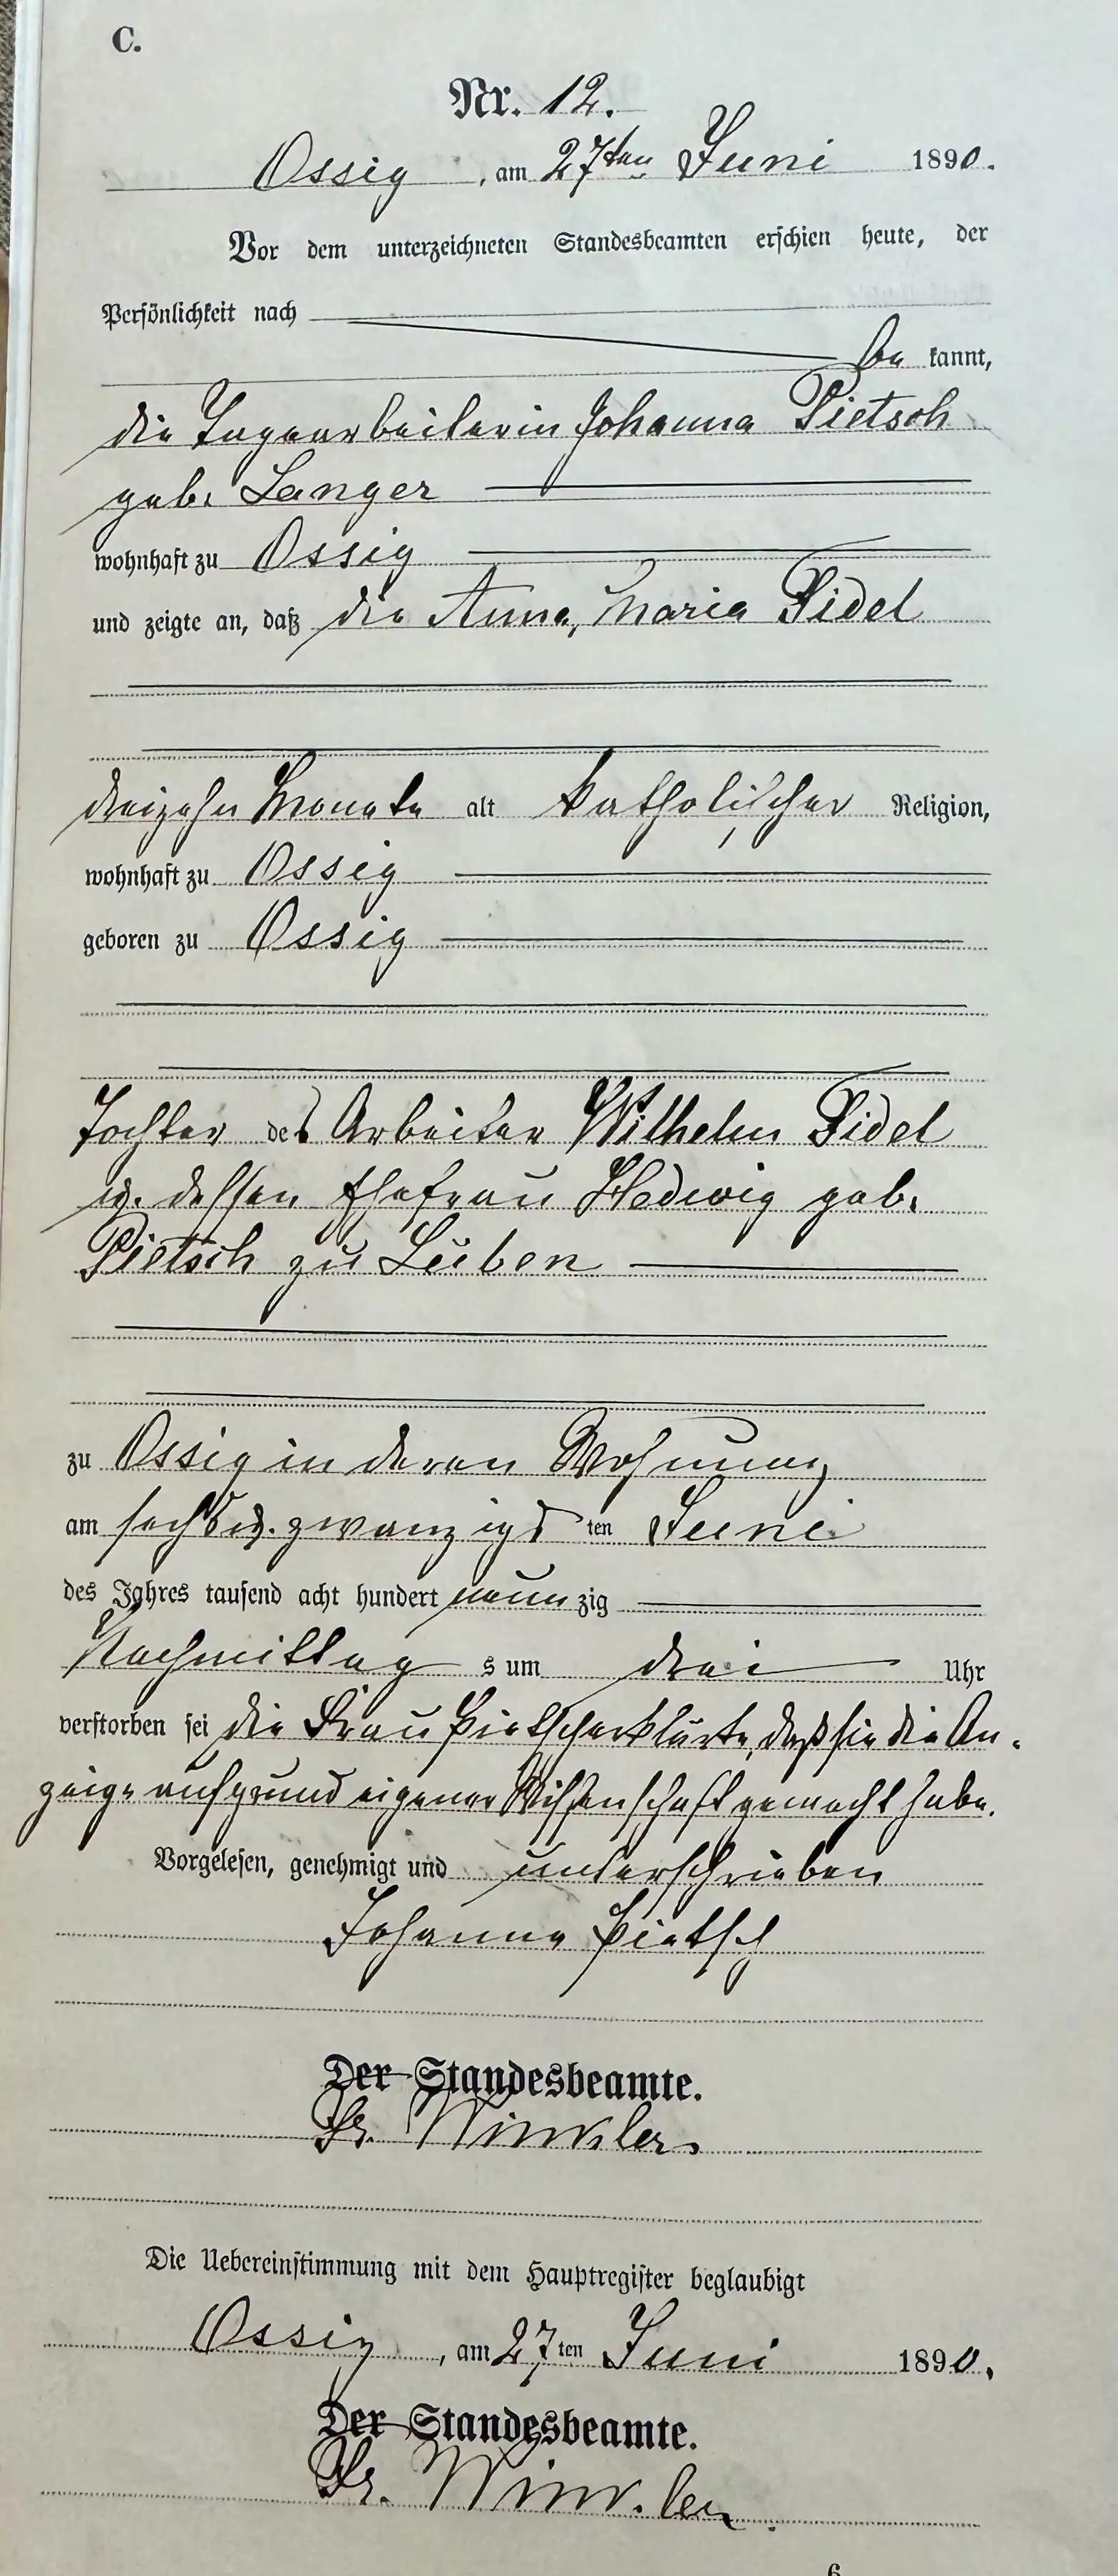 C.
Nr. 12.
Ossig, am 27ten Juni 1890.
Vor dem unterzeichneten Standesbeamten erschien heute, der
Persönlichkeit nach
be kannt,
die Tagearbeiterin Johanna Pietsch
geb. Langer
wohnhaft zu Ossig
und zeigte an, daß die Anna, Maria Fidel
dreizehn Monate alt katholischer Religion,
wohnhaft zu Ossig
geboren zu Ossig
Tochter des Arbeiter Wilhelm Fidel
u. dessen Ehefrau Hedwig geb.
Pietsch zu Lüben
zu Ossig in deren Wohnung
am sechs u. zwanzigs ten Juni
des Jahres tausend acht hundert neun zig
Nachmittag s um drei Uhr
verstorben sei die Frau Pietsch erklärte, daß sie die An-
zeige auf grund eigener Wissenschaft gemacht habe.
Vorgelesen, genehmigt und unterschrieben
Johanna Pietsch
Der Standesbeamte.
Fr. Winkler.
Die Uebereinstimmung mit dem Hauptregister beglaubigt
Ossig, am 27ten Juni 1890.
Der Standesbeamte.
Fr. Winkler.
6